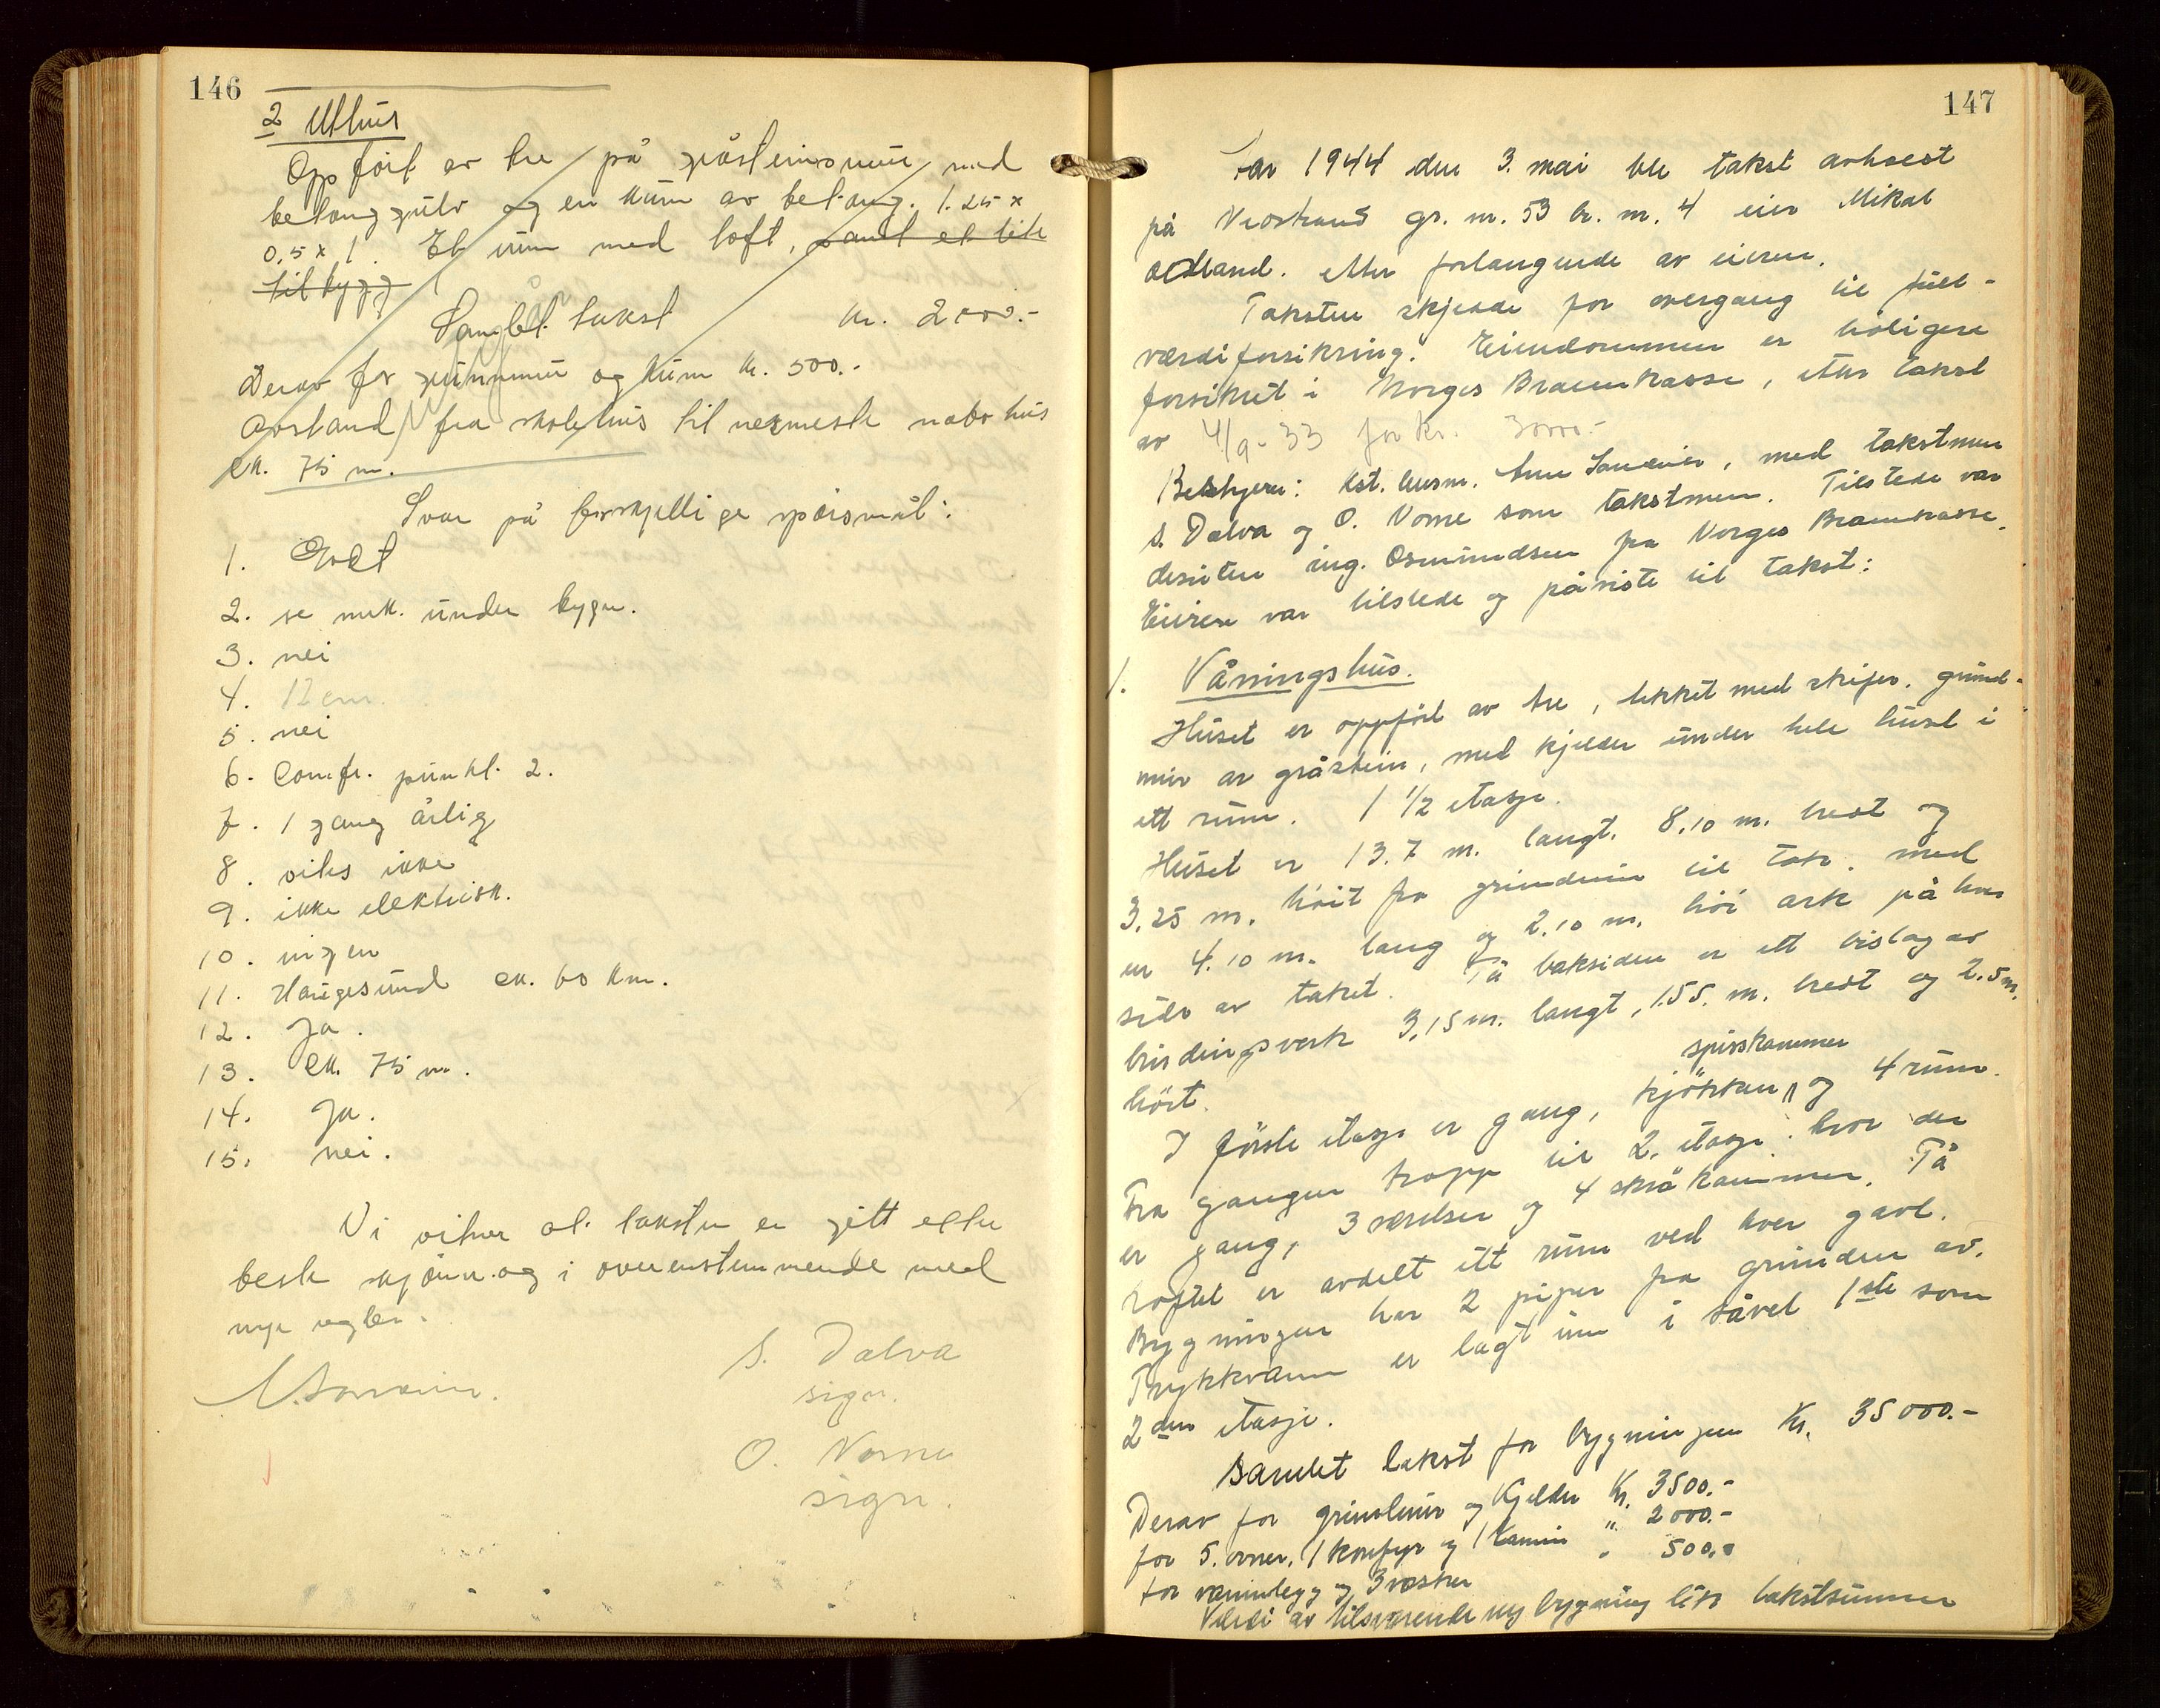 146
2 Uthus
Oppført av tre på gråsteinsmur med
betonggulv og en kum av betong. 1.25 x
0.5 x 1. Et rum med loft, samt et lite
tilbygg
Samlet takst kr. 2000.-
Derav for grunnmur og kum kr. 500.-
Avstand fra skolehus til nermeste nabohus
ca. 75 m.
Svar på forskjellige spørsmål:
1. Godt
2. se merk. under bygn.
3. nei
4. 12 cm.
5. nei
6. Comfr. punkt. 2.
7. 1 gang årlig
8. vites ikke
9. ikke elektrisk.
10. ingen
11. Haugesund ca. 60 km.
12. Ja.
13. ca. 75 m.
14. Ja.
15. nei.
Vi vitner at taksten er gitt etter
beste skjønn og i overenstemmende med
nye regler.
S. Dalva
sign.
O. Norne
sign.
147
År 1944 den 3. mai ble takst avholdt
på Nedstrand gr. nr. 53 br. nr. 4 eier Mikal
Ødland. etter forlangende av eieren.
Taksten skjedde for overgang til full-
verdiforsikring. Eiendommen er tidligere
forsikret i Norges Brannkasse, etter takst
av 4/9-33 for kr. 30000.-
Bestyrer: kst. lensm. med takstmen
S. Dalva og O. Norne som takstmenn. Tilstede var
desuten ing. Osmundsen fra Norges Brannkasse.
Eieren var tilstede og påviste til takst:
1. Våningshus.
Huset er oppført av tre, tekket med skifer. grund-
mur av gråstein, med kjelder under hele huset i
ett rum. 1 1/2 etasje.
Huset er 13.7 m. langt. 8.10 m. bredt og
3.25 m. høit fra grundmur til tak. med
en 4.10 m. lang og 2.10 m. høi ark på hver
side av taket. På baksiden er ett bislag av
bindingsverk 3.15 m. langt, 1.55. m. bredt og 2.5 m.
høit.
I første etasje er gang, kjøkken, spisskammer og 4 rum.
Fra gangen trapp til 2. etasje. hvor der
er gang, 3 værelser og 4 skråkammer. På
loftet er avdelt ett rum ved hver gavl.
Bygningen har 2 piper fra grunden av.
Trykkvann er lagt inn i såvel 1ste som
2den etasje.
Samlet takst for bygningen Kr. 35000.-
Derav for grundmur og Kjelder Kr. 3500.-
for 5. ovner, 1 komfyr og 1 kamin " 2000.-
for vannlegg og 3 vasker " 500.-
Verdi av tilsvarende ny bygning lik takstsummen